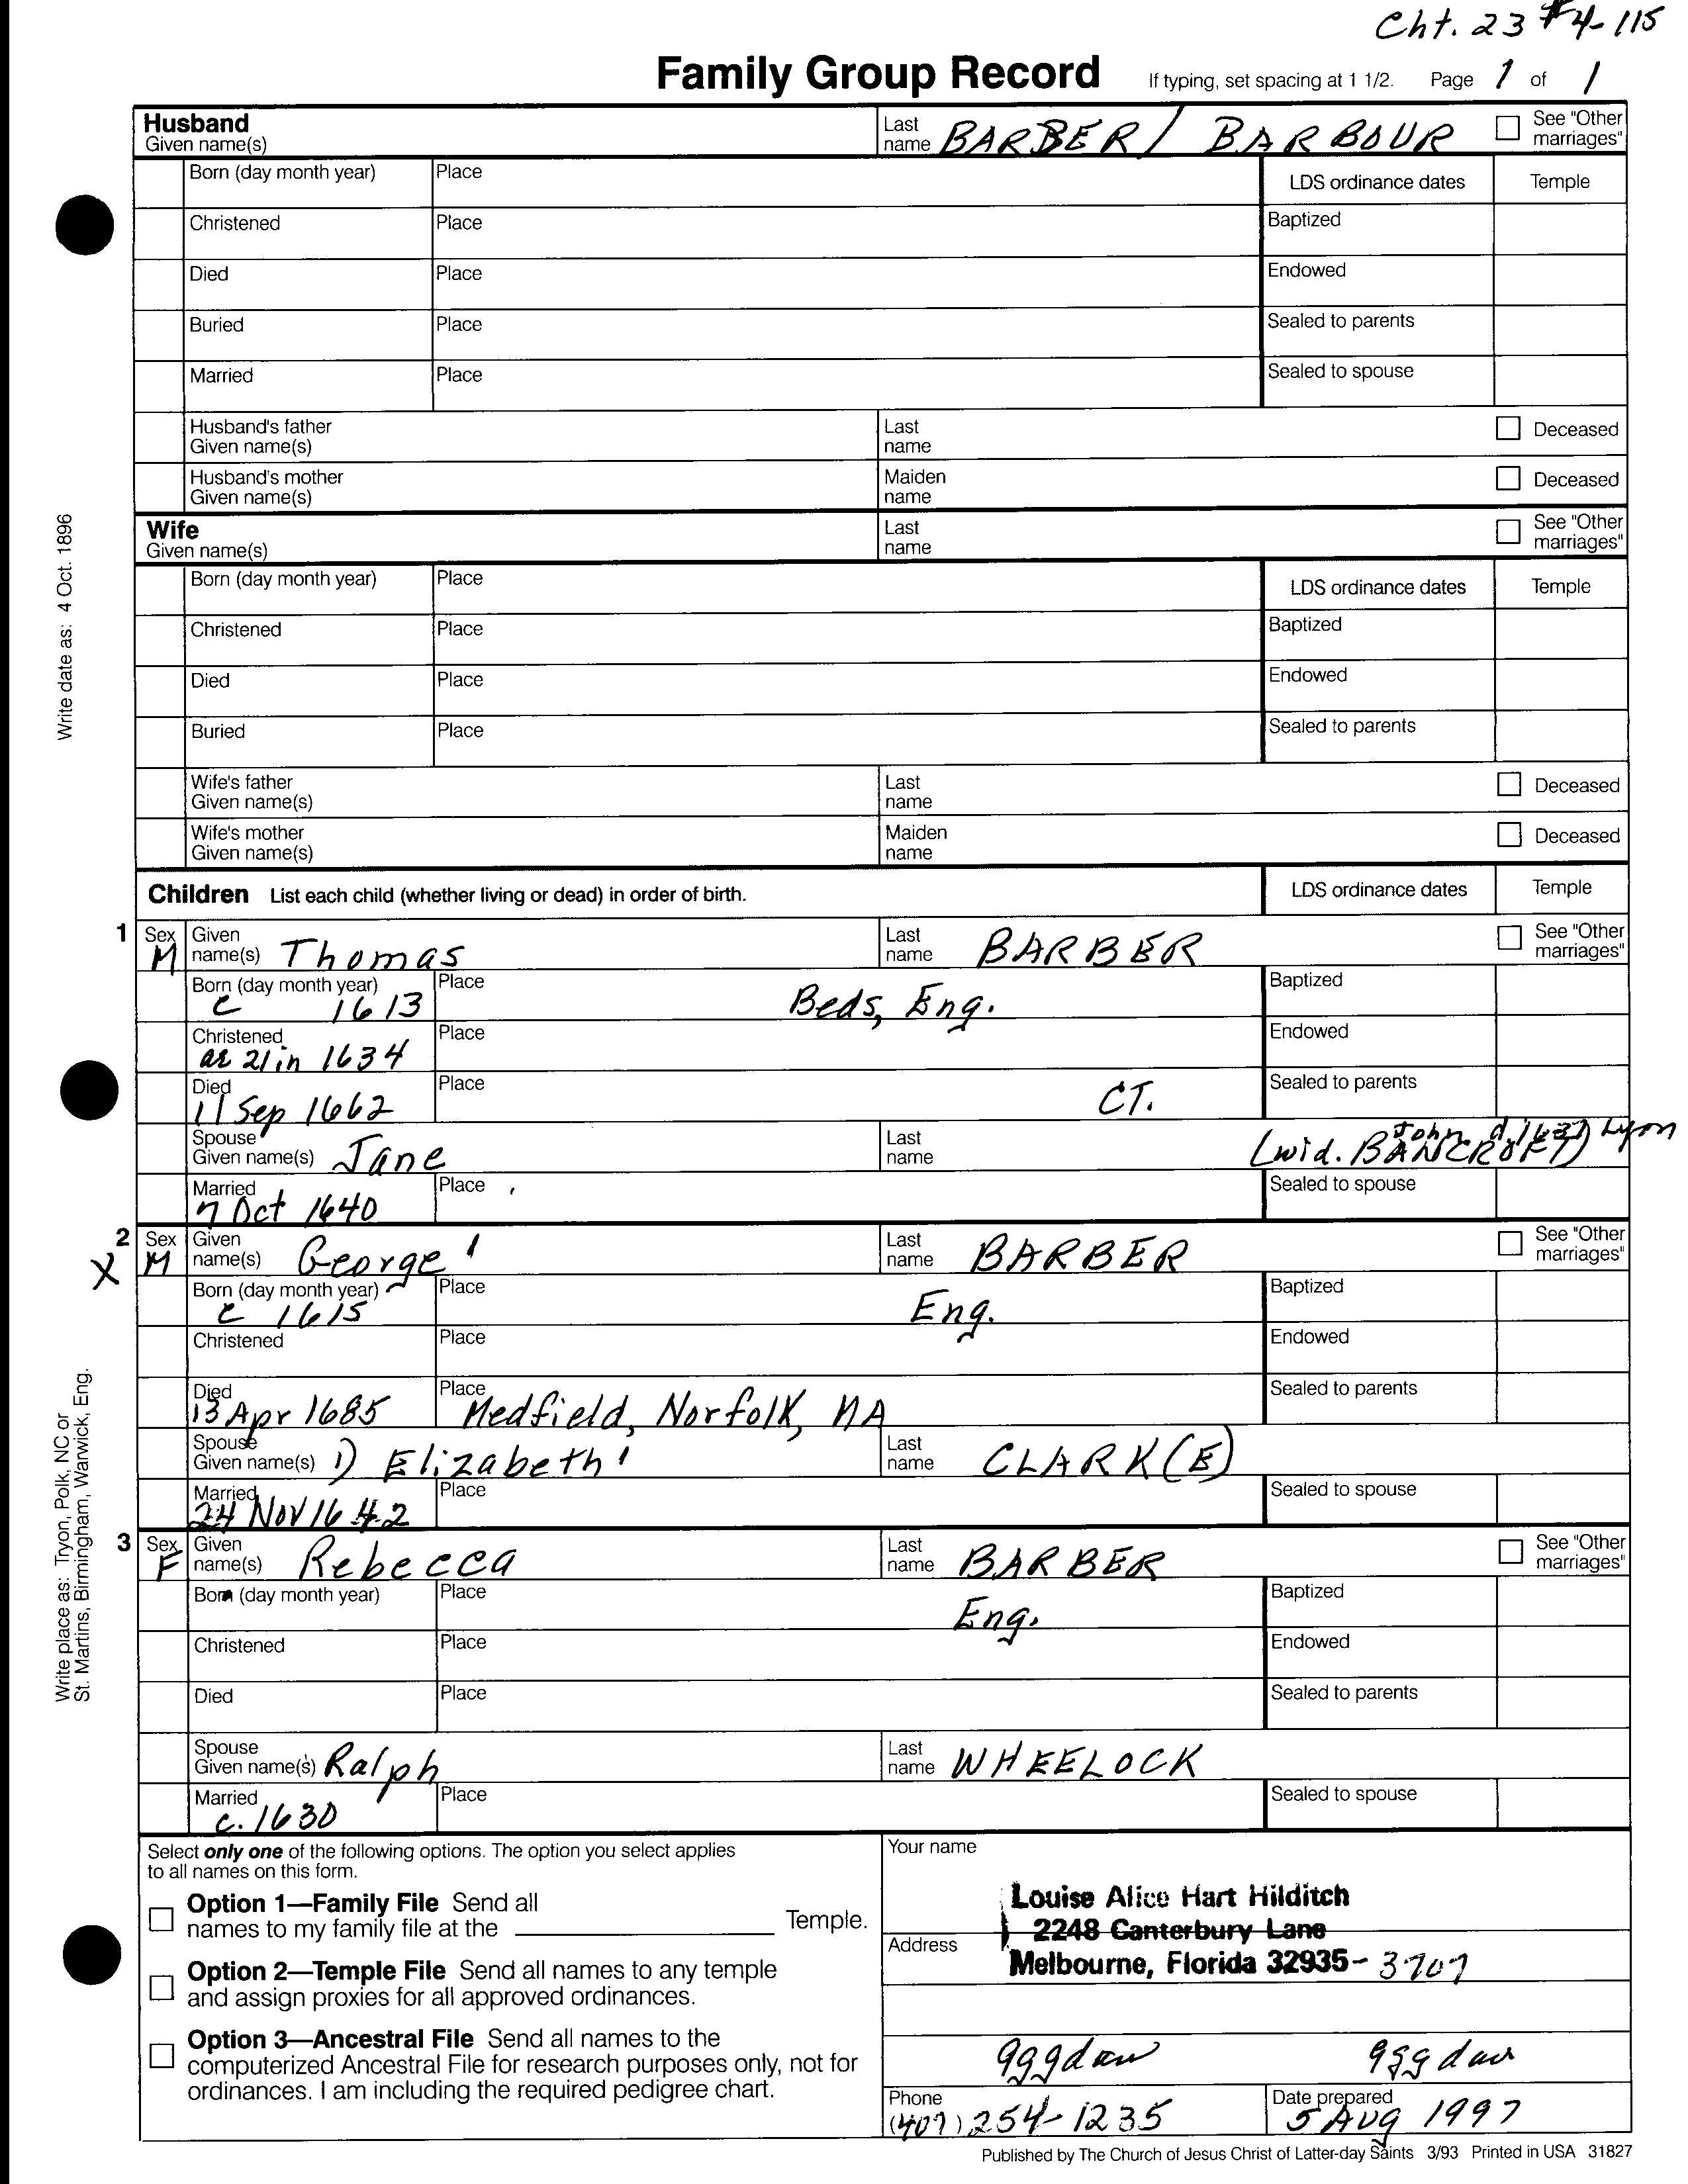 Cht. 23 #4-115
Family Group Record If typing, set spacing at 1 1/2. Page 1 of 1
Husband
Given name(s) Last name BARBER/ BARBOUR See "Other marriages"
Born (day month year) Place LDS ordinance dates Temple
Christened Place Baptized
Died Place Endowed
Buried Place Sealed to parents
Married Place Sealed to spouse
Husband's father
Given name(s) Last name Deceased
Husband's mother
Given name(s) Maiden name Deceased
Wife
Given name(s) Last name See "Other marriages"
Born (day month year) Place LDS ordinance dates Temple
Christened Place Baptized
Died Place Endowed
Buried Place Sealed to parents
Wife's father
Given name(s) Last name Deceased
Wife's mother
Given name(s) Maiden name Deceased
Write date as: 4 Oct. 1896
Children List each child (whether living or dead) in order of birth. LDS ordinance dates Temple
1 Sex M Given name(s) Thomas Last name BARBER See "Other marriages"
Born (day month year) c 1613 Place Beds, Eng. Baptized
Christened ae 21 in 1634 Place Endowed
Died 11 Sep 1662 Place CT. Sealed to parents
Spouse Given name(s) Jane Last name (wid. BANCROFT) John d. 1637 Lyon
Married 7 Oct 1640 Place Sealed to spouse
2 X Sex M Given name(s) George 1 Last name BARBER See "Other marriages"
Born (day month year) c 1615 Place Eng. Baptized
Christened Place Endowed
Died 13 Apr 1685 Place Medfield, Norfolk, MA Sealed to parents
Spouse Given name(s) 1) Elizabeth 1 Last name CLARK(E)
Married 24 Nov 1642 Place Sealed to spouse
3 Sex F Given name(s) Rebecca Last name BARBER See "Other marriages"
Born (day month year) Place Eng. Baptized
Christened Place Endowed
Died Place Sealed to parents
Spouse Given name(s) Ralph Last name WHEELOCK
Married c. 1630 Place Sealed to spouse
Write place as: Tryon, Polk, NC or
St. Martins, Birmingham, Warwick, Eng.
Select only one of the following options. The option you select applies
to all names on this form.
Option 1—Family File Send all
names to my family file at the Temple.
Option 2—Temple File Send all names to any temple
and assign proxies for all approved ordinances.
Option 3—Ancestral File Send all names to the
computerized Ancestral File for research purposes only, not for
ordinances. I am including the required pedigree chart.
Your name
Louise Alice Hart Hilditch
2248 Canterbury Lane
Address
Melbourne, Florida 32935-3707
gggdau gggdau
Phone (407) 254-1235 Date prepared 5 Aug 1997
Published by The Church of Jesus Christ of Latter-day Saints 3/93 Printed in USA 31827